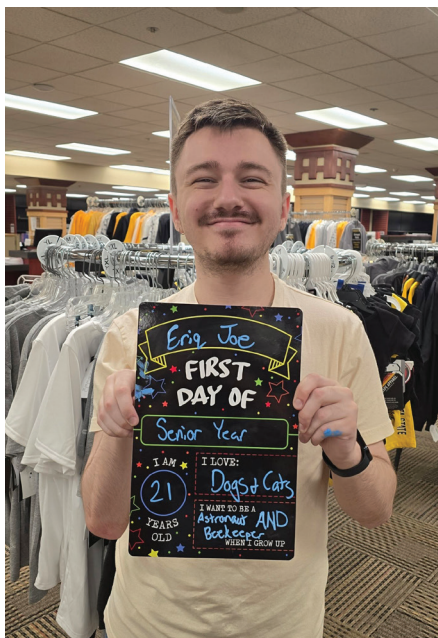 Eriq Joe
FIRST
DAY OF
Senior Year
I AM
21
YEARS
OLD
I LOVE:
Dogs & Cats
I WANT TO BE A
Astronaut AND
Beekeeper
WHEN I GROW UP